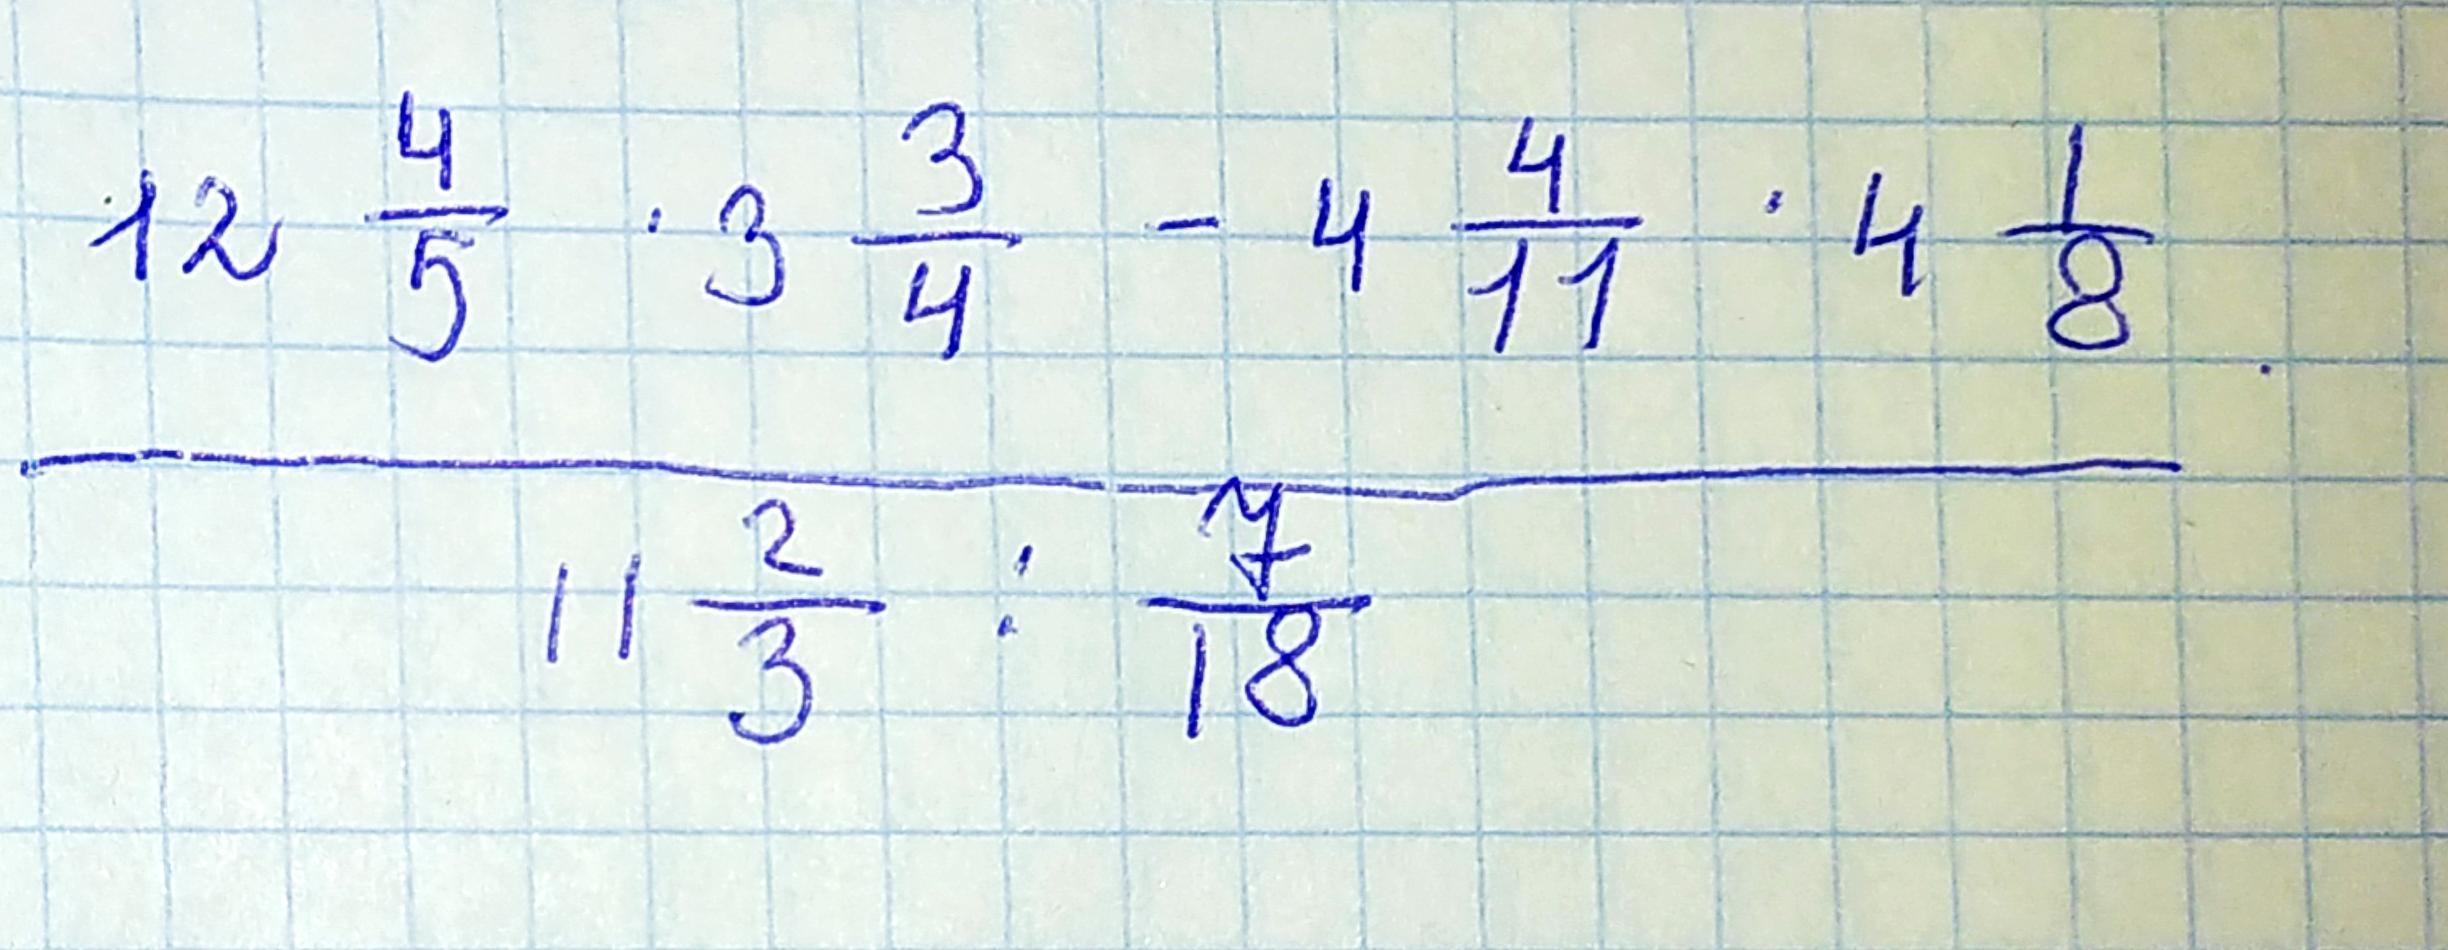 12 4/5 · 3 3/4 - 4 4/11 · 4 1/8
11 2/3 : 7/18